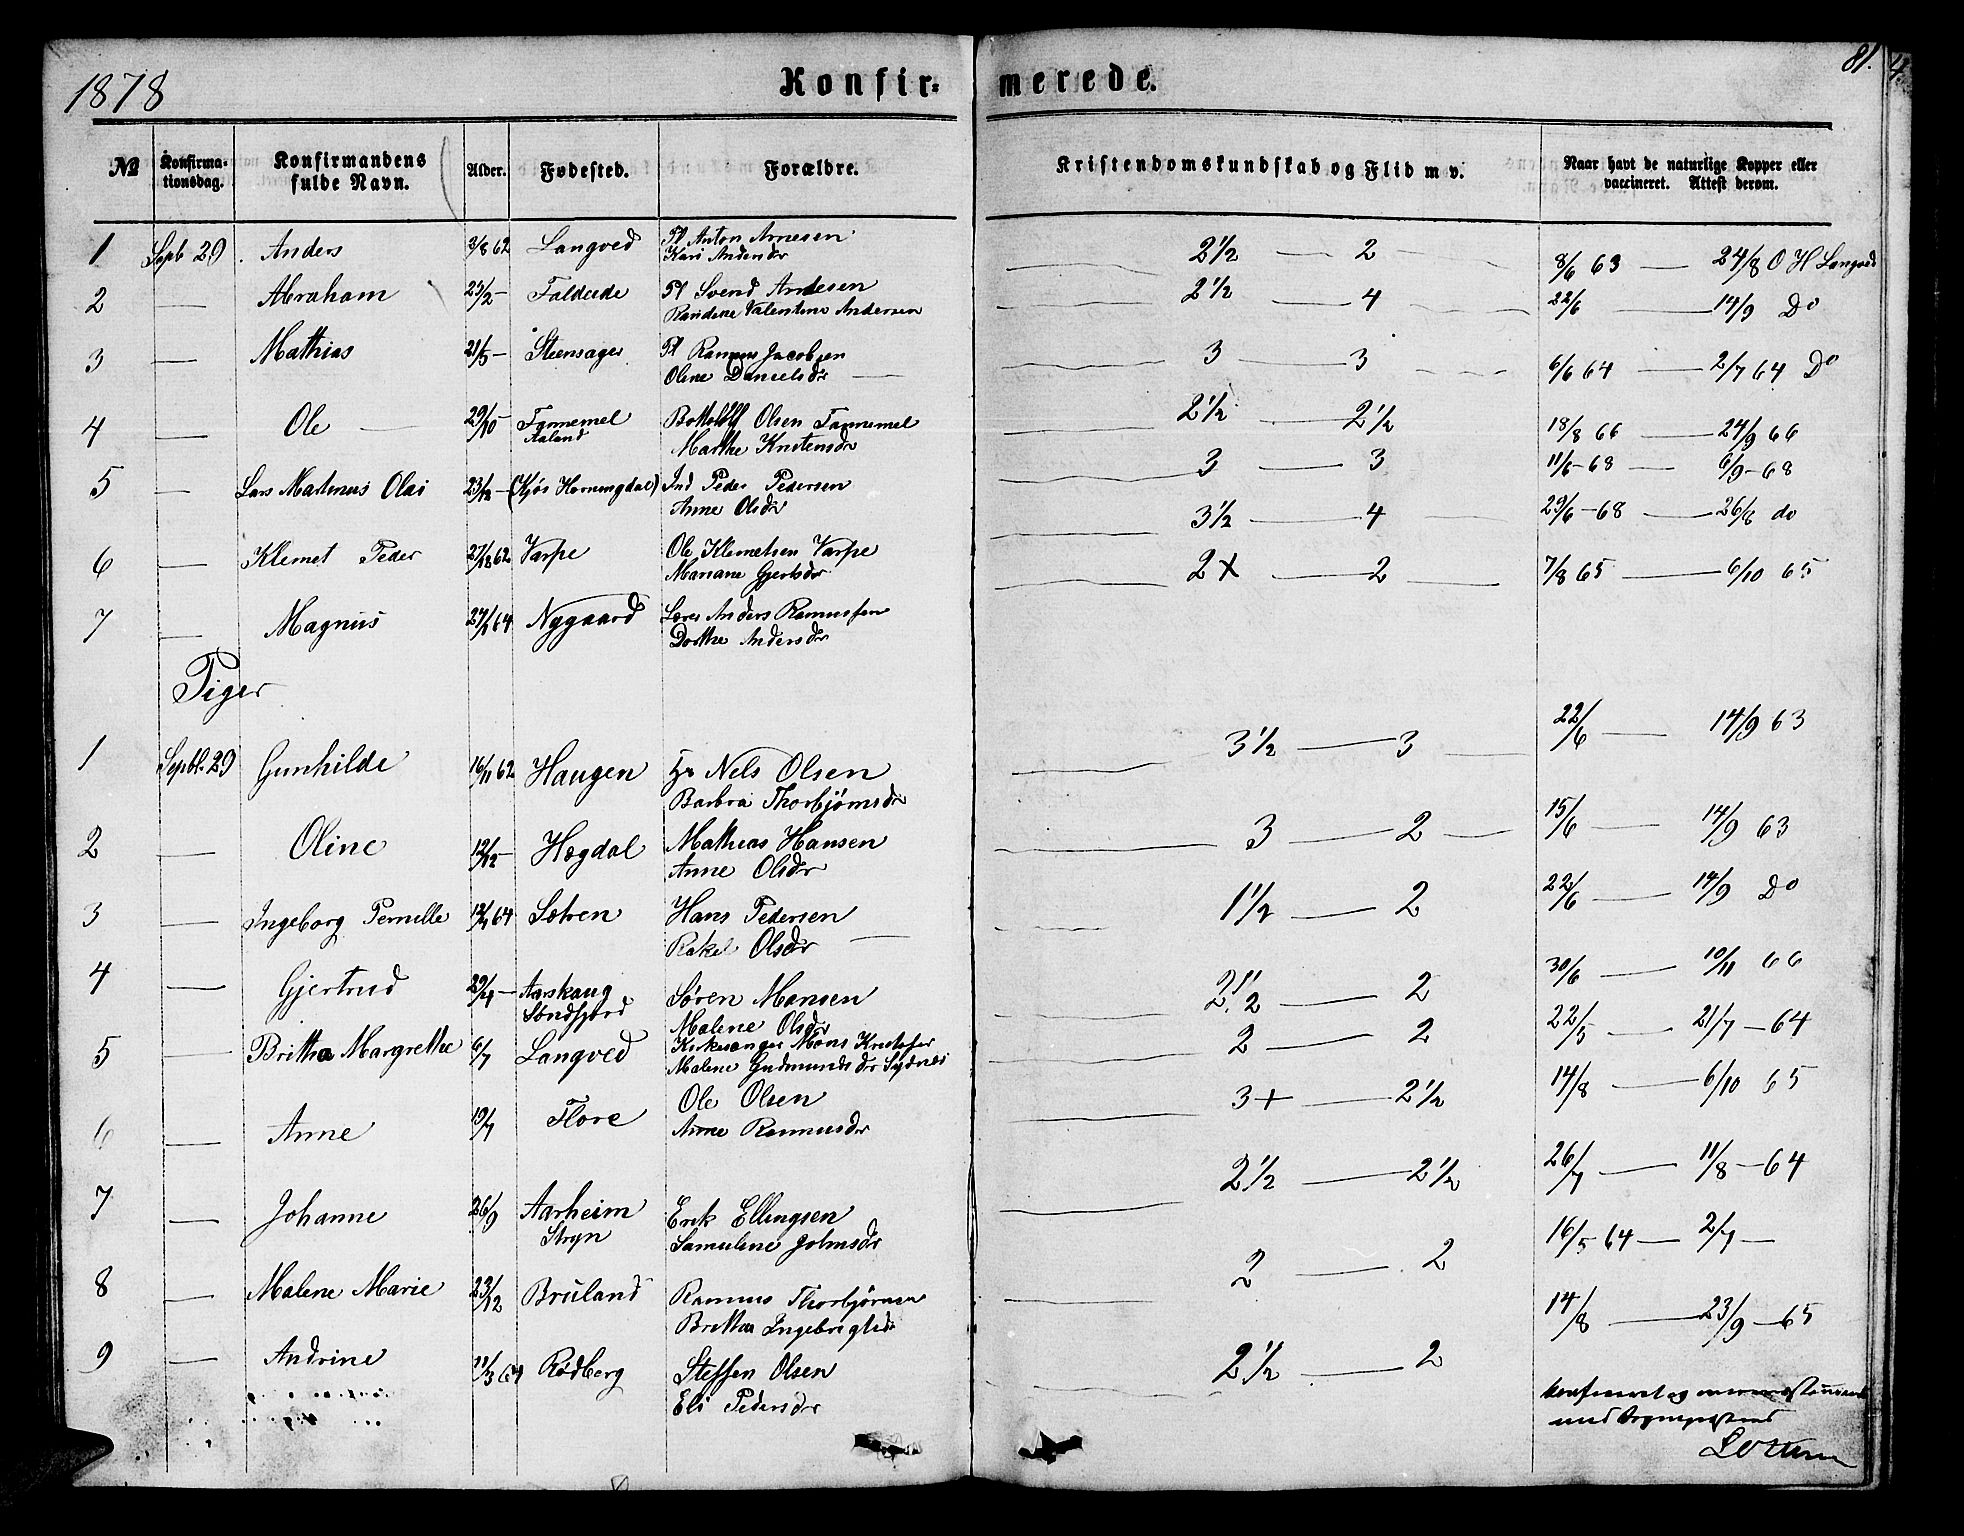 1878 Konfir= merede. 81.
№ Konfirma-tionsdag. Konfirmandens fulde Navn. Alder. Fødested. Forældre. Kristendomskundskab og Flid m v. Naar havt de naturlige Kopper eller vaccineret. Attest derom.
1 Septb 29. Anders 3/8 62 Langved Pl Anton Arnesen 2 1/2 — 2 8/6 63 — 24/8 O H Langved
Kari Andersdr
2 — Abraham 23/2 — Faldeide Pl Svend Andersen 2 1/2 — 4 22/6 14/9 Do
Randine Valentine Andersen
3 — Mathias 21/5 — Steensager Pl Rasmus Jacobsen 3 — 3 6/6 64 — 2/7 64 Do
Oline Danielsdr —
4 — Ole — 29/10 — Tannemel Bottolf Olsen Tannemel 2 1/2 — 2 1/2 18/8 66 — 24/9 66
Aaland Marthe Knutensdr
5 — Lars Martinus Olai 23/12 — (Kjøs Horningdal) Ind Peder Pedersen 3 — 3 11/6 - 68 — 6/9 - 68
Anne Olsdr
3 1/2 — 4 29/6 - 68 — 26/8 do
6 — Klemet Peder 27/18 62 Varpe Ole Klemetsen Varpe 2 + — 2 7/8 65 — 6/10 65
Mariane Gjertsdr
7 — Magnus 27/1 64 Nygaard Lærer Anders Rasmussen
Dorthe Andersdr
Piger
1 Septbr. 29 Gunhilde 16/11 62 Haugen Hr Nels Olsen 3 1/2 — 3 22/6 — 14/9 63
Barbra Thorbjørnsdr
2 — Oline 12/12 — Hogdal Mathias Hansen 3 — 2 15/6 — 14/9 63
Anne Olsdr
3 — Ingeborg Pernille 12/4 64 Sætren Hans Pedersen 1 1/2 — 2 22/6 — 14/9 Do
Rakel Olsdr —
4 — Gjertrud 29/4 — Aarskaug Søren Monsen 2 1/2 — 2 30/6 — 10/11 66
Søndfjord Malene Olsdr
5 — Britha Margrethe 6/7 Langved Kirkesanger Mons Knutsen 2 — 2 22/5 — 21/7 — 64
Malene Gudmundsdr Sydnes
6 — Anne 19/7 Florø Ole Olsen 3 + — 2 1/2 14/8 — 6/10 65
Anne Rasmusdr
7 — Johanne 26/9 Aarheim Erik Ellingsen 2 1/2 — 2 1/2 26/7 — 11/8 — 64
Stryn Samuline Johnsdr
8 — Malene Marie 23/12 Bruland Rasmus Thorbjørnsen 2 — 2 16/5 64 — 2/7 —
Britha Ingebrigtsdr
9 — Andrine 11/3 64 Rødberg Steffen Olsen 2 1/2 — 2 14/8 — 23/9 — 65
Eli Pedersdr